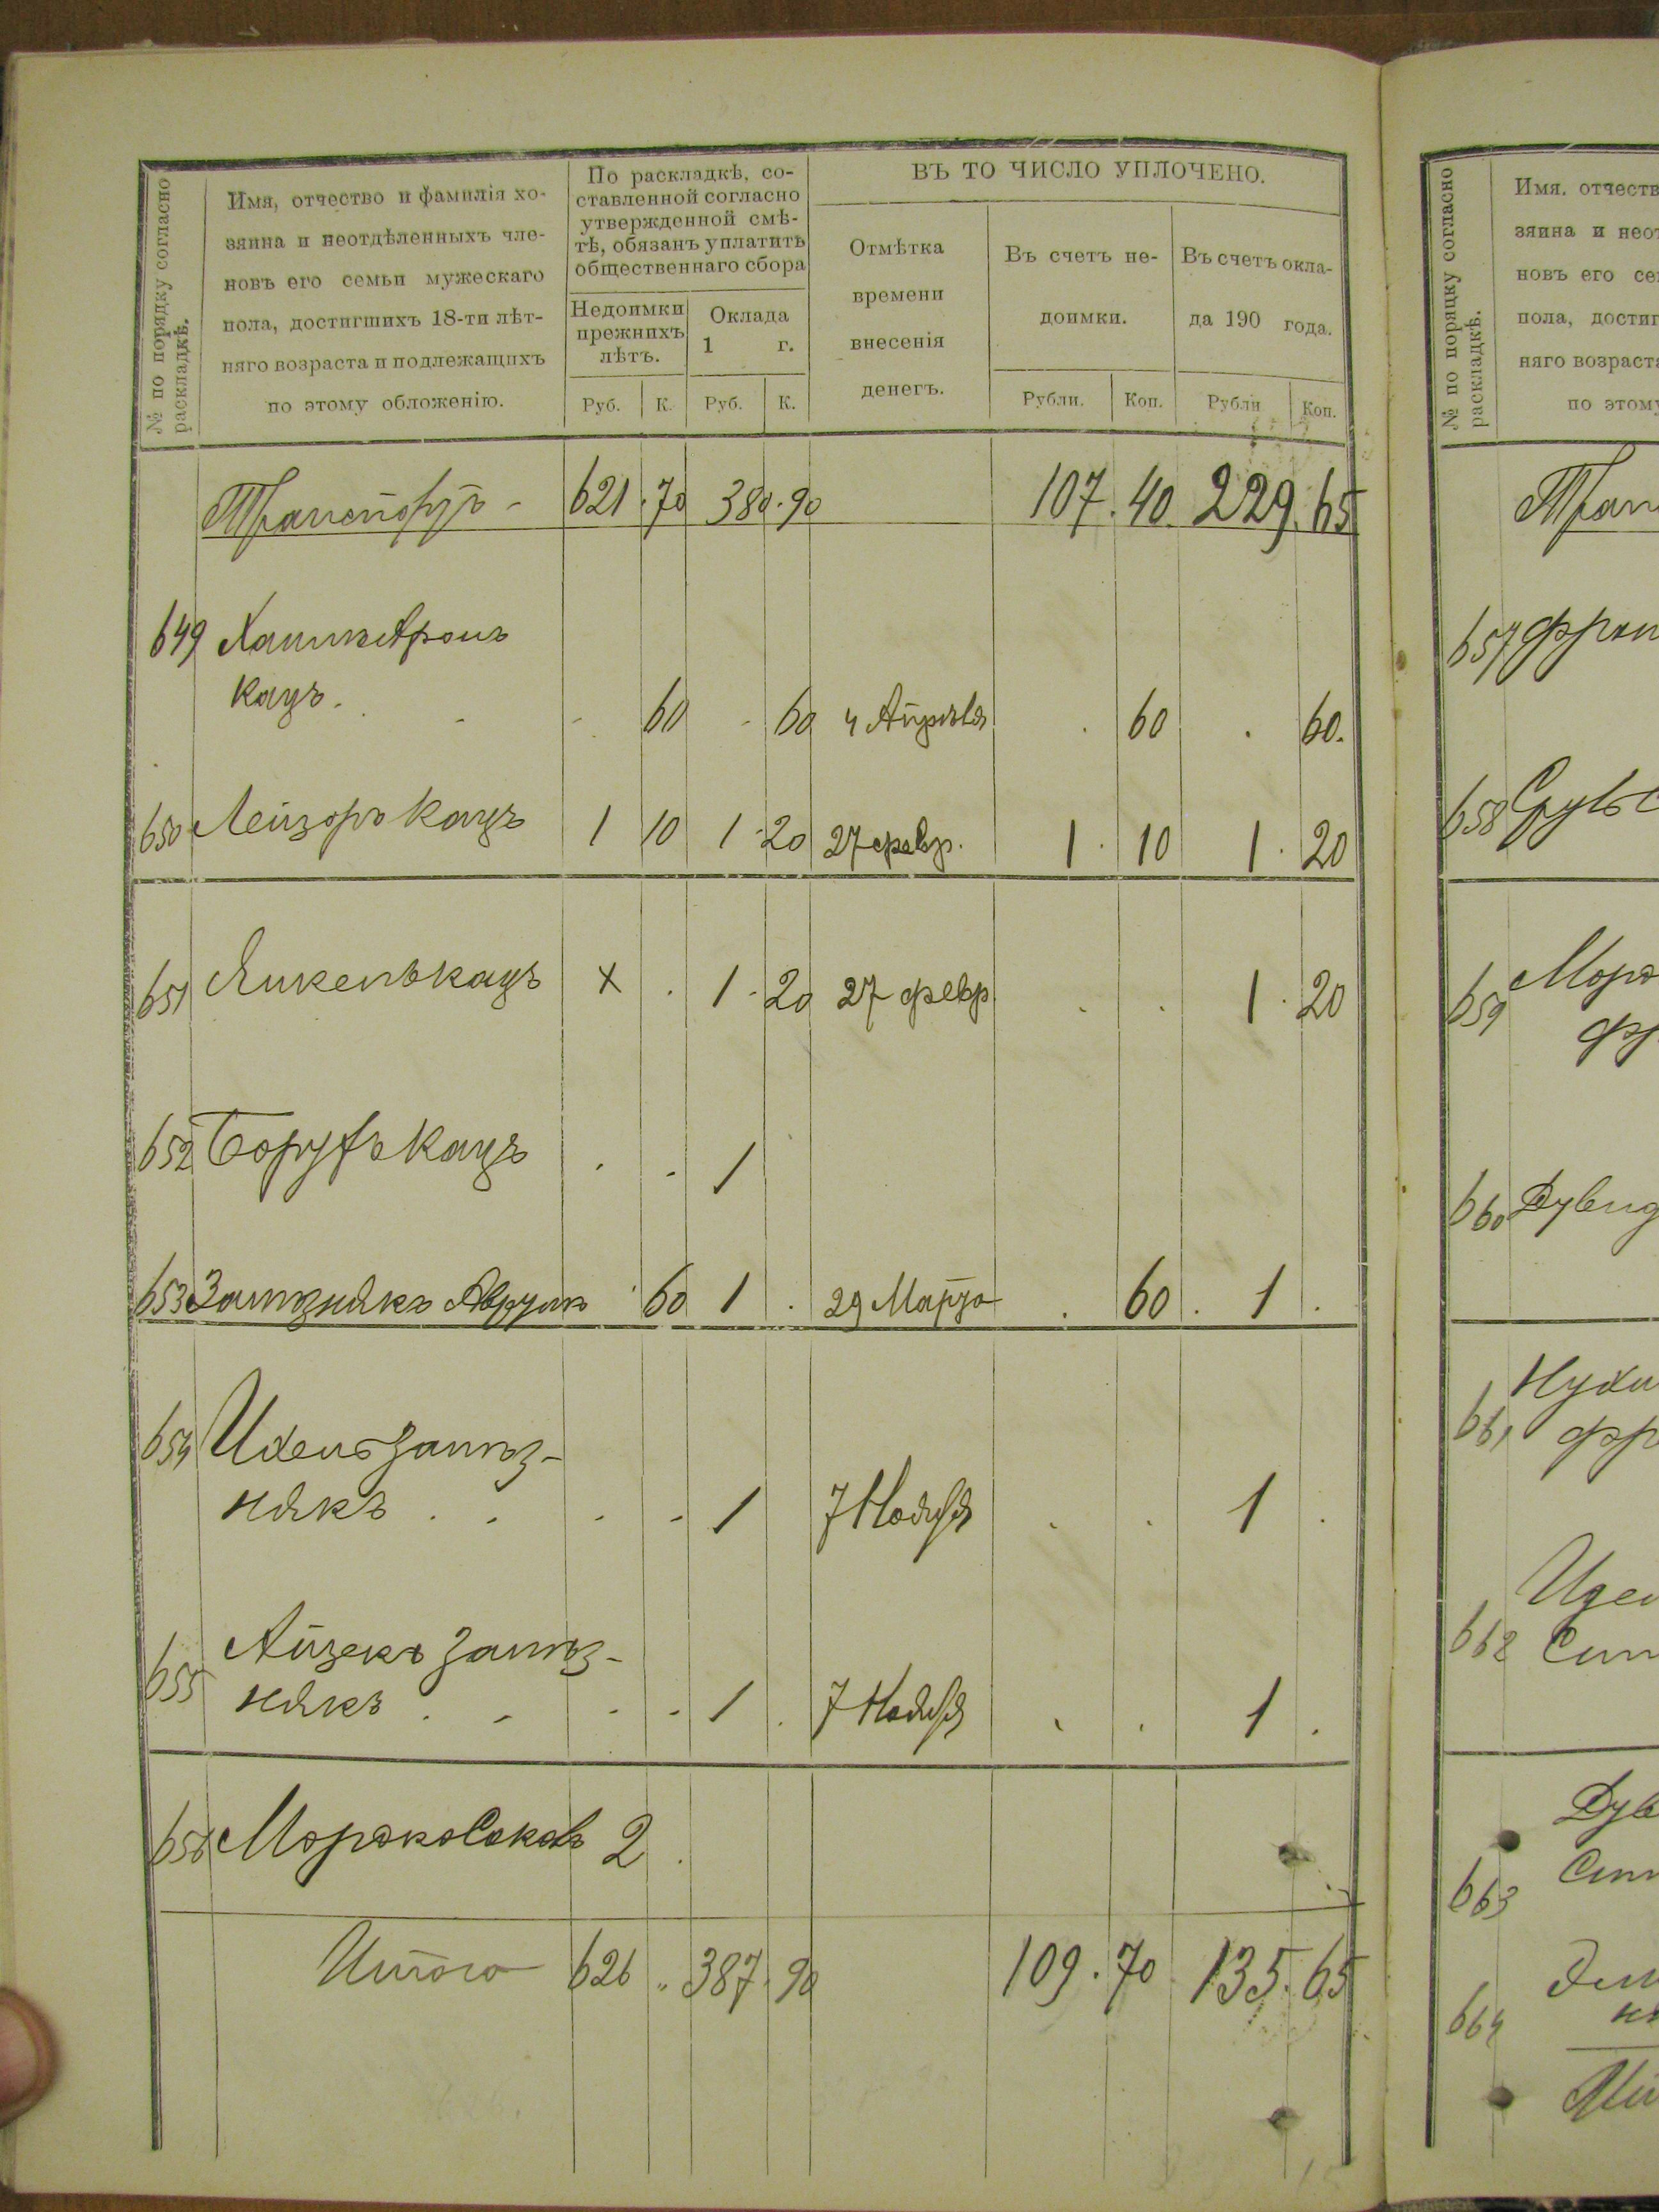 № по порядку согласно раскладкѣ.
Имя, отчество и фамилія хо-
зяина и неотдѣленныхъ чле-
новъ его семьи мужескаго
пола, достигшихъ 18-ти лѣт-
няго возраста и подлежащихъ
по этому обложенію.
По раскладкѣ, со-
ставленной согласно
утвержденной смѣ-
тѣ, обязанъ уплатить
общественнаго сбора
Недоимки
прежнихъ
лѣтъ.
Оклада
1 г.
Руб. К. Руб. К.
ВЪ ТО ЧИСЛО УПЛОЧЕНО.
Отмѣтка
времени
внесенія
денегъ.
Въ счетъ не-
доимки.
Въ счетъ окла-
да 190 года.
Рубли. Коп. Рубли Коп.
Транспортъ - 621.70 380.90 107.40. 229.65
649 Хаимъ Аронъ
Кацъ. 60 60 4 Апрѣля 60 60.
650 Лейзоръ Кацъ 1 10 1 20 27 февр. 1 10 1 20
651 Янкель Кацъ х 1 20 27 февр. 1 20
652 Борухъ Кацъ 1
653 Аврумъ 60 1 29 Марта 60 1
654
някъ 1 7 Ноября 1
655 Айзекъ
някъ 1 7 Ноября 1
656 2
Итого 626 387.90 109.70 135.65
№ по порядку согласно раскладкѣ.
Имя. отчеств
зяина и неот
новъ его се
пола, достиг
няго возраста
по этому
657
658
659
660 Дувид
661
662
663
664